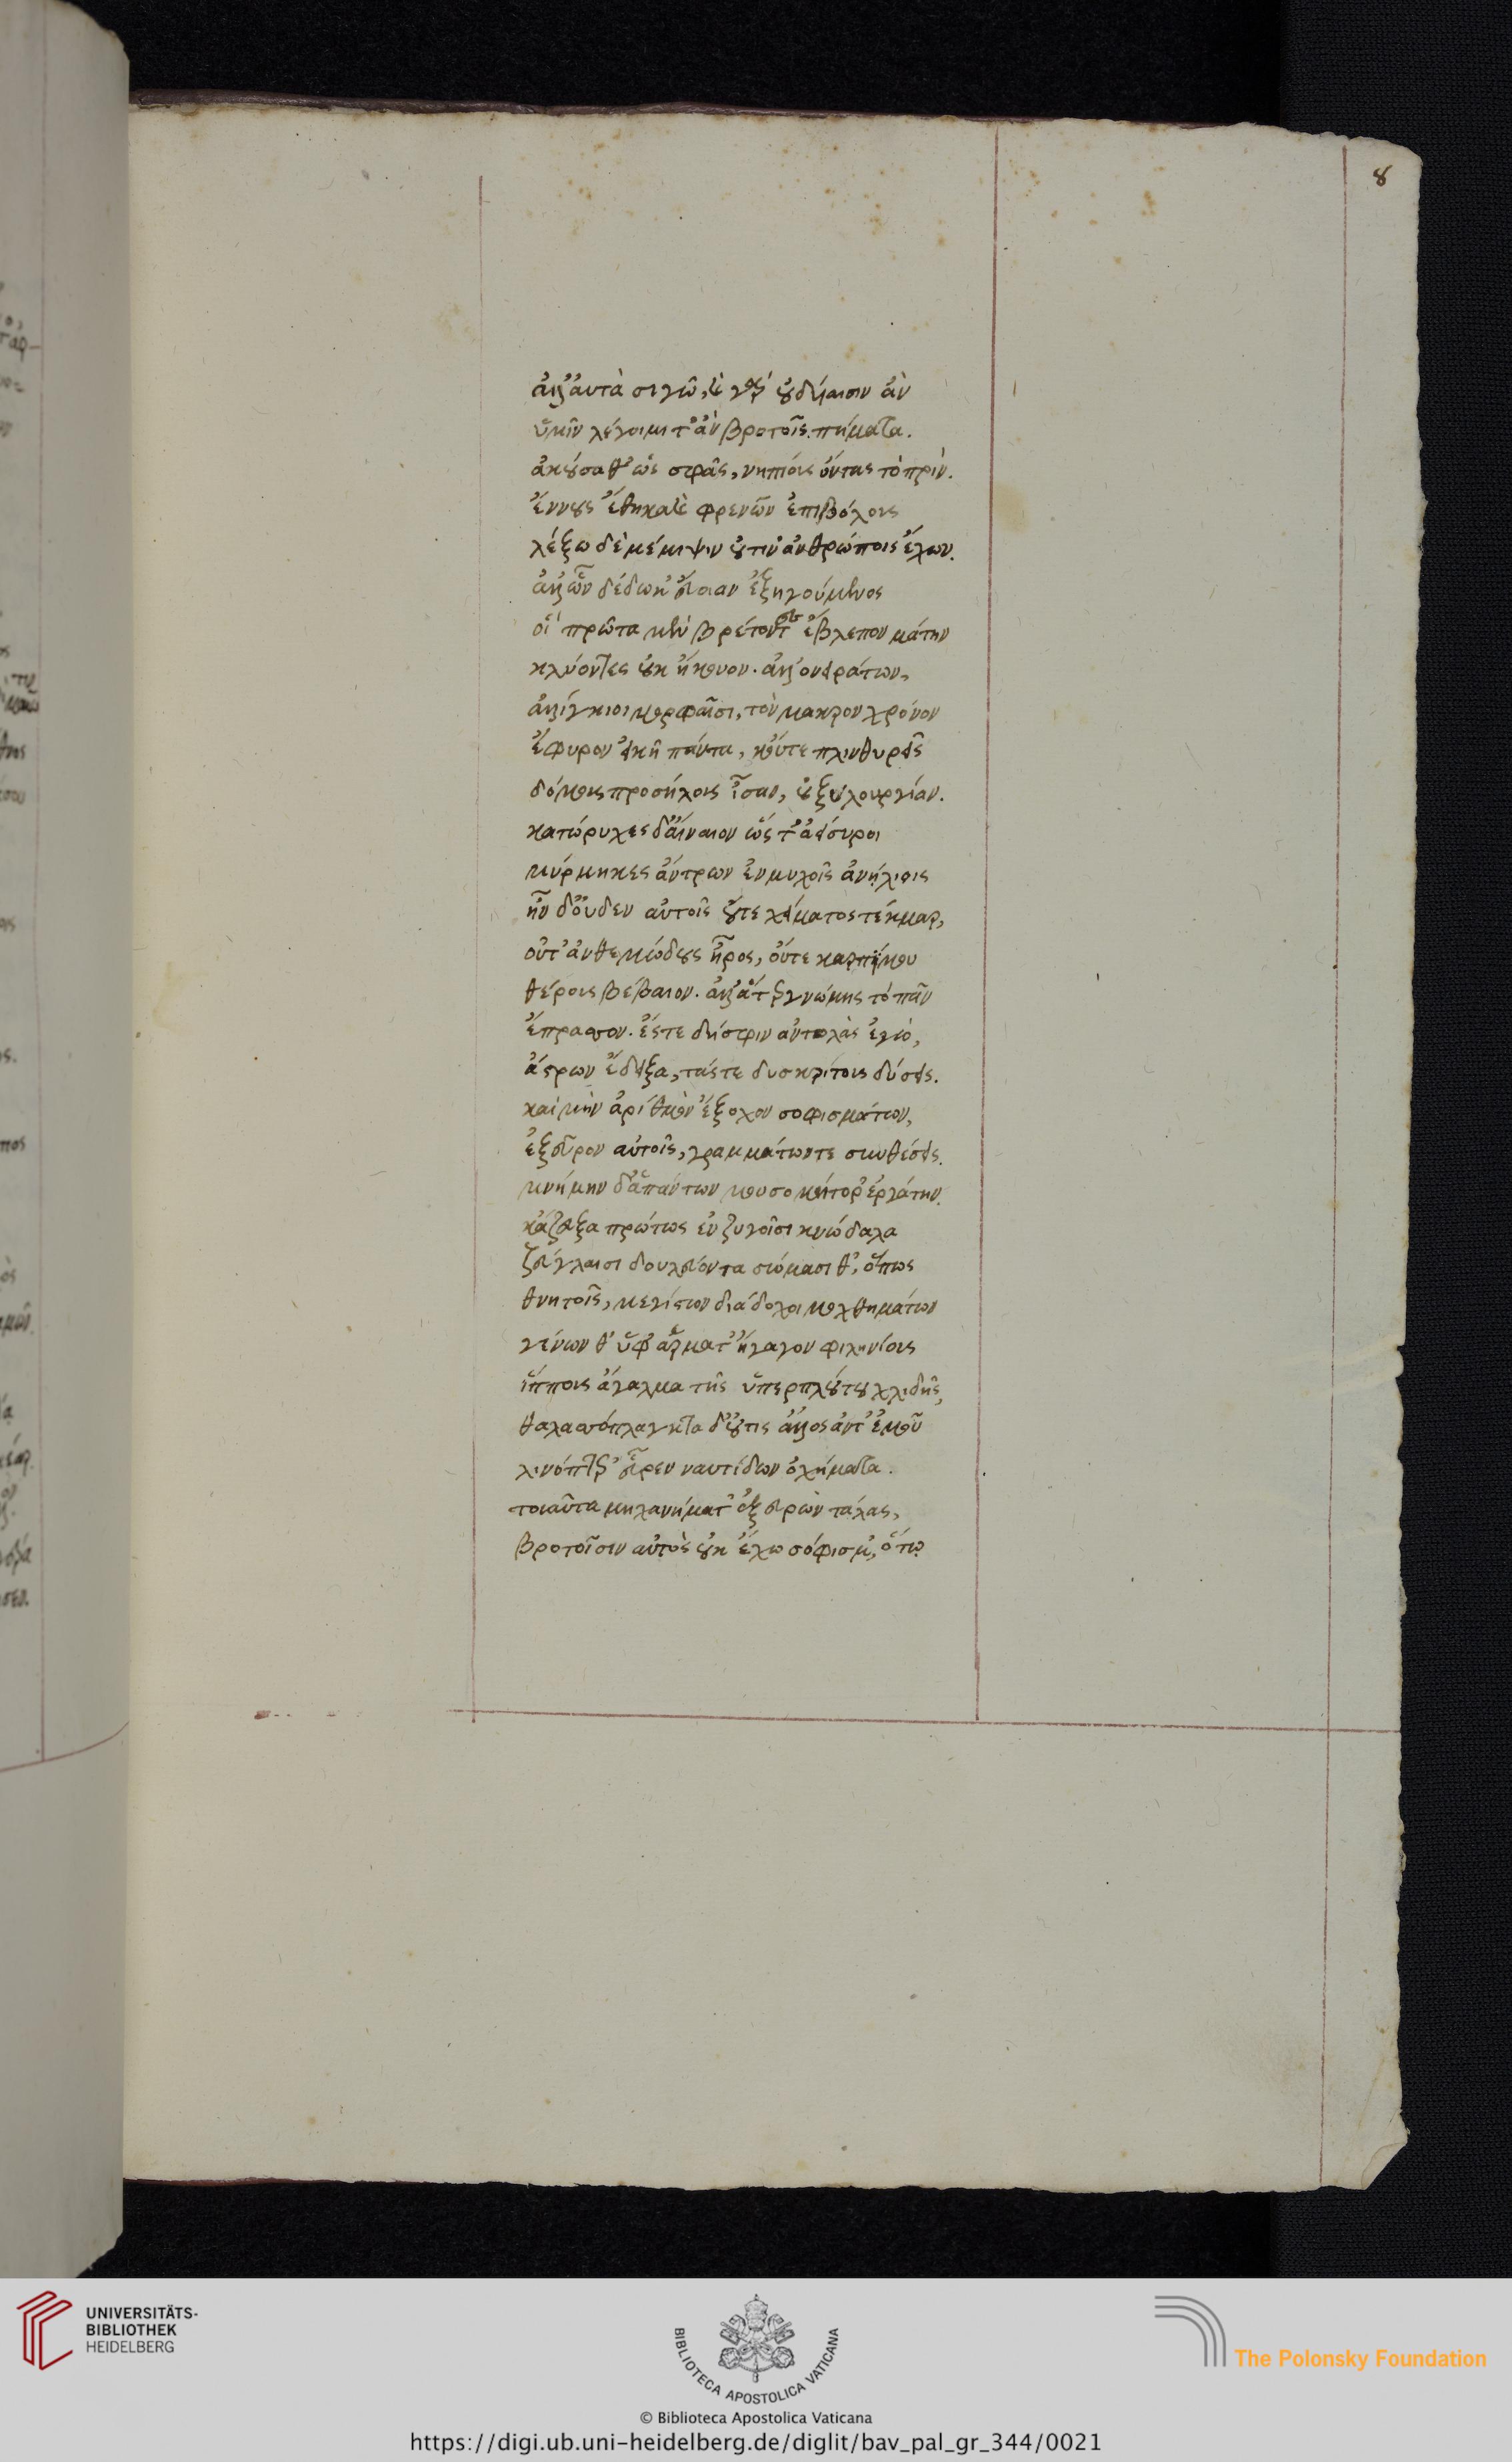 8
ἀλλ' αὐτὰ σιγῶ, καὶ γὰρ οὐδ' εἰδυίαισιν ἂν
ὑμῖν λέγοιμι τ' ἂν βροτοῖς πήματα.
ἀκούσαθ' ὥς σφᾶς, νηπίους ὄντας τὸ πρὶν.
ἔννους ἔθηκα καὶ φρενῶν ἐπιβόλους
λέξω δὲ μέμψιν οὔτιν' ἀνθρώποις ἔχων.
ἀλλ' ὧν δέδωκ' εὔνοιαν ἐξηγούμενος
οἳ πρῶτα μὲν βλέποντες ἔβλεπον μάτην
κλύοντες οὐκ ἤκουον. ἀλλ' ὀνειράτων,
ἀλίγκιοι μορφαῖσι, τὸν μακρον χρόνον
ἔφυρον εἰκῆ πάντα, κοὔτε πλινθυφεῖς
δόμους προσήλους ἦσαν, οὐ ξυλουργίαν.
κατώρυχες δ' ἔναιον ὥς τ' ἀείσυροι
μύρμηκες ἄντρων ἐν μυχοῖς ἀνηλίοις
ἦν δ' οὐδεν αὐτοῖς οὔτε χείματος τέκμαρ,
οὔτ' ἀνθεμώδους ἦρος, οὔτε καρπίμου
θέρους βέβαιον. ἀλλ' ἄτερ γνώμης τὸ πᾶν
ἔπρασσον. ἔστε δή σφιν ἀντολὰς ἐγὼ,
ἄστρων ἔδειξα, τάς τε δυσκρίτους δύσεις.
καὶ μὴν ἀριθμὸν ἔξοχον σοφισμάτων,
ἐξεῦρον αὐτοῖς, γραμμάτων τε συνθέσεις.
μνήμην δ' ἁπάντων μουσομήτορ' ἐργάτην.
κἄζευξα πρώτως ἐν ζυγοῖσι κνώδαλα
ζεύγλαισι δουλεύοντα σώμασι θ', ὅπως
θνητοῖς, μεγίστων διάδοχοι μοχθημάτων
γένων θ' ὑφ' ἅρματ' ἤγαγον φιληνίους
ἵππους ἄγαλμα τῆς ὑπερπλούτου χλιδῆς,
θαλασσόπλαγκτα δ' οὔτις ἄλλος ἀντ' ἐμοῦ
λινόπτερ' εὗρεν ναυτίλων ὀχήματα.
τοιαῦτα μηχανήματ' ἐξευρὼν τάλας,
βροτοῖσιν αὐτὸς οὐκ ἔχω σόφισμ', ὅτῳ
UNIVERSITÄTS-
BIBLIOTHEK
HEIDELBERG
BIBLIOTECA APOSTOLICA VATICANA
The Polonsky Foundation
© Biblioteca Apostolica Vaticana
https://digi.ub.uni-heidelberg.de/diglit/bav_pal_gr_344/0021